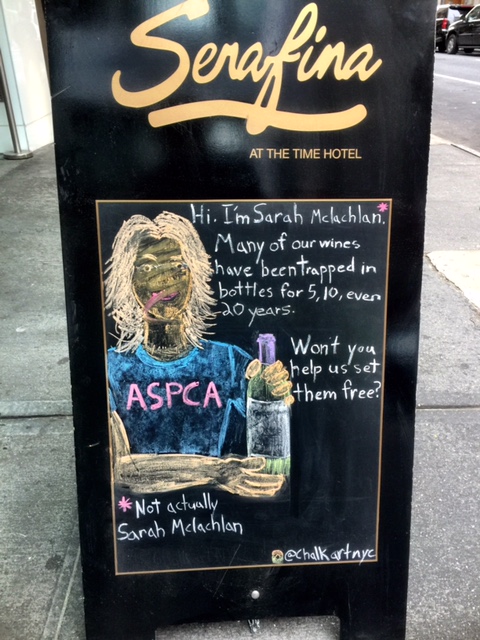 Serafina
AT THE TIME HOTEL
Hi. I'm Sarah Mclachlan.*
Many of our wines
have been trapped in
bottles for 5, 10, even
20 years.
Wont you
help us set
them free?
ASPCA
*Not actually
Sarah Mclachlan
@chalkartnyc